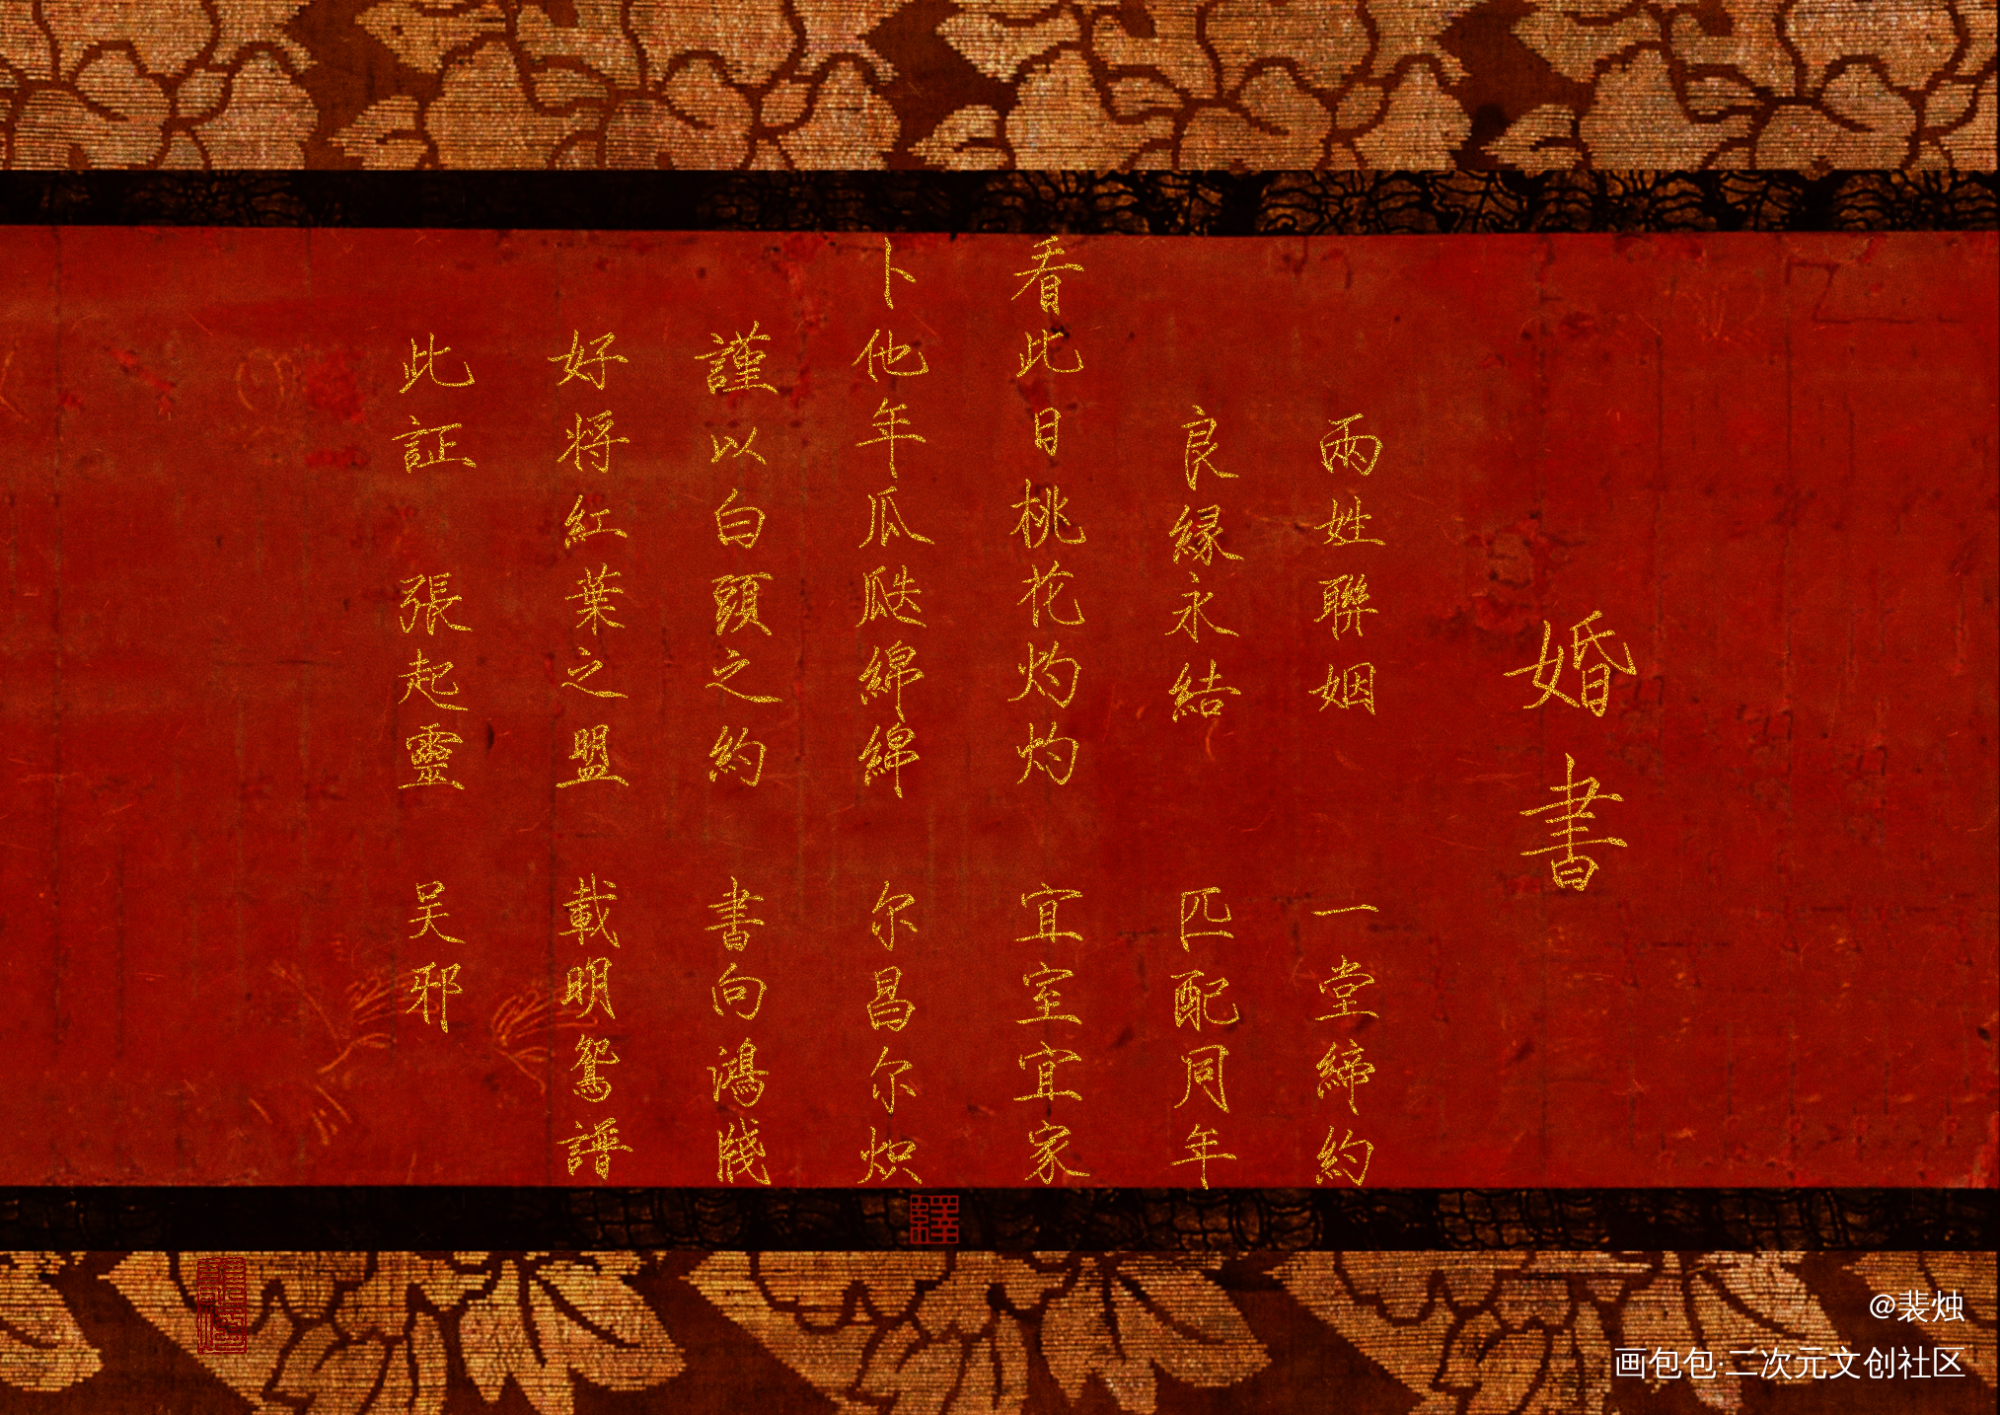 婚書
兩姓聯姻 一堂締約
良緣永結 匹配同年
看此日桃花灼灼 宜室宜家
卜他年瓜瓞綿綿 尔昌尔炽
謹以白頭之約 書向鴻牋
好将紅葉之盟 載明鴛譜
此証 張起靈 吴邪
@裴烛
画包包·二次元文创社区